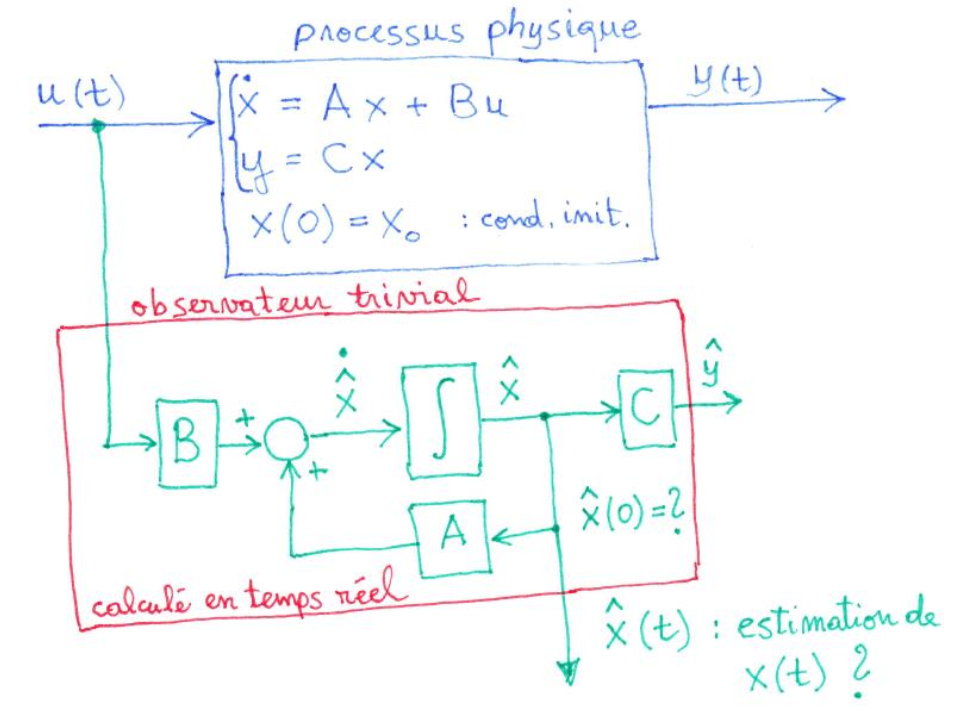 processus physique
u(t)
ẋ = Ax + Bu
y = Cx
x(0) = x₀ : cond. init.
y(t)
observateur trivial
B
+
+
x̂̇
∫
x̂
C
ŷ
A
x̂(0)=?
calculé en temps réel
x̂(t) : estimation de
x(t) ?